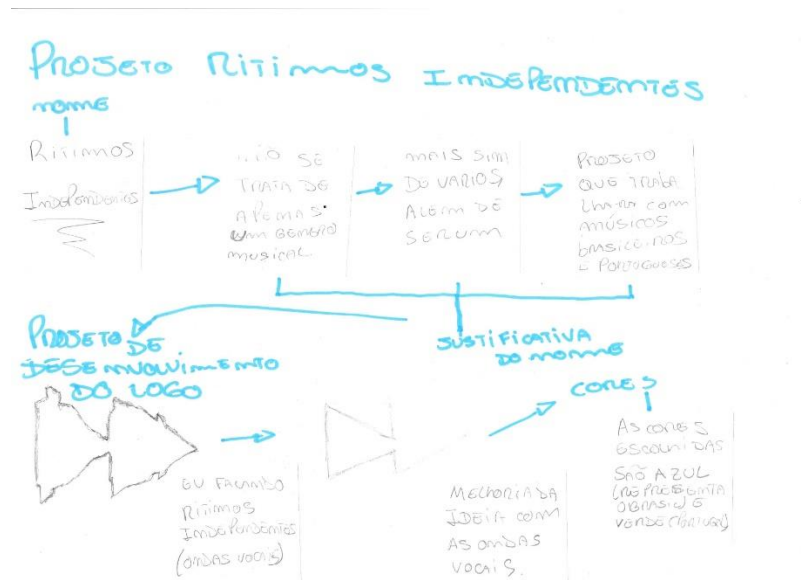 PROJETO RITIMOS INDEPENDENTES
NOME
RITIMOS
INDEPENDENTES
SE
TRATA DE
APENAS
UM GENERO
MUSICAL.
MAIS SIM
DE VARIOS,
ALEM DE
SER UM
PROJETO
QUE TRABA
LHARA COM
MÚSICOS
BRASILEIROS
E PORTUGUESES
PROJETO DE
DESENVOLVIMENTO
DO LOGO
JUSTIFICATIVA
DO NOME
CORES
EU FALANDO
RITIMOS
INDEPENDENTES
(ONDAS VOCAIS)
MELHORIA DA
IDEIA COM
AS ONDAS
VOCAIS.
AS CORES
ESCOLHIDAS
SÃO AZUL
(REPRESENTA
O BRASIL) E
VERDE (PORTUGAL)